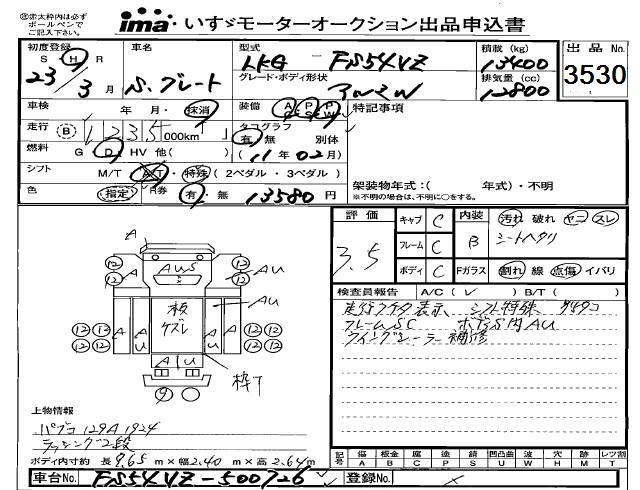 ㊟※太枠内は必ず
ボールペンで
ご記入下さい。
ima いすゞモーターオークション出品申込書
初度登録 車名 型式 積載 (kg) 出品No
S H R S.グレート LKG - FS54VZ 13400 3530
23年 3月 グレード・ボディ形状 排気量 (cc)
アルミW 12800
車検 年 月・抹消 装備 AC PS PW 特記事項
走行 B 1235 000km タコグラフ 有・無 別体
燃料 G D HV 他( ) (11年02月)
シフト M/T A/T・特殊(2ペダル・3ペダル) 架装物年式:( 年式)・不明
色 指定 R券 有・無 13580円 ※不明の場合は、不明に○をする。
評価 キャブ C 内装 汚れ 破れ ヤニ スレ
3.5 フレーム C B シートヘタリ
ボディ C Fガラス 割れ 線 点傷 イバリ
検査員報告 A/C(レ) B/T( )
走行 表示 シフト特殊 デジタコ
フレームSC ボデS内AU
ウイングシーラー補修
A
AUS
AU
板
ケズレ
AU
A
A
A
A
A U
枠T
12
12
12
12
12
12
12
12
9
上物情報
パブコ 129A1924
ラッシング2段
ボディ内寸約 長9.65m×幅2.40m×高2.64m
記号 傷 板金 腐 塗 錆 凹凸曲 波 穴 跡 レツ割
A B C P S U W H M T
車台No. FS54VZ-500726 登録No.